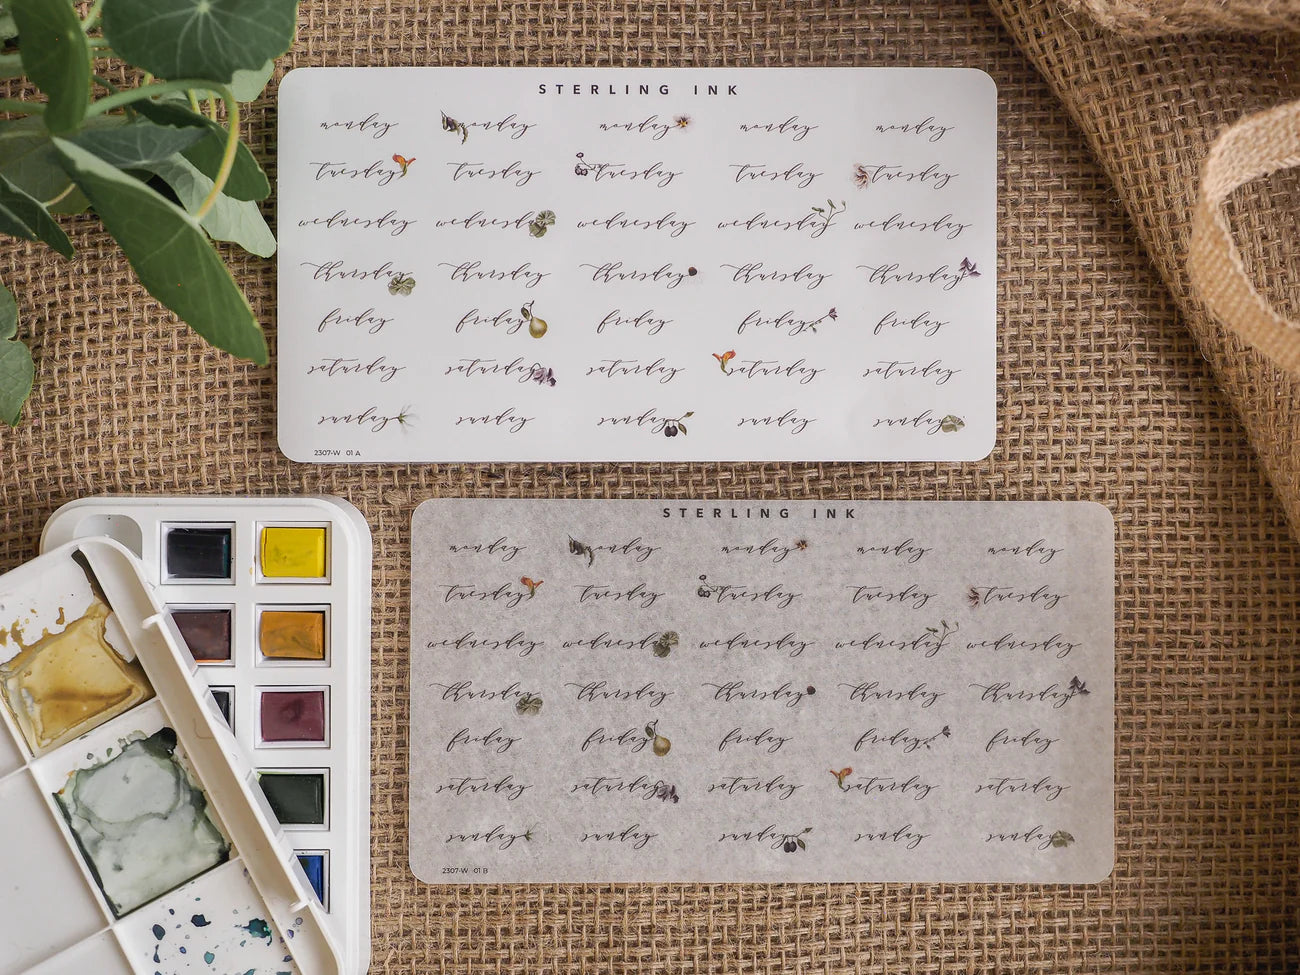 STERLING INK
monday monday monday monday monday
tuesday tuesday tuesday tuesday tuesday
wednesday wednesday wednesday wednesday wednesday
thursday thursday thursday thursday thursday
friday friday friday friday friday
saturday saturday saturday saturday saturday
sunday sunday sunday sunday sunday
2307-W 01 A
STERLING INK
monday monday monday monday monday
tuesday tuesday tuesday tuesday tuesday
wednesday wednesday wednesday wednesday wednesday
thursday thursday thursday thursday thursday
friday friday friday friday friday
saturday saturday saturday saturday saturday
sunday sunday sunday sunday sunday
2307-W 01 B